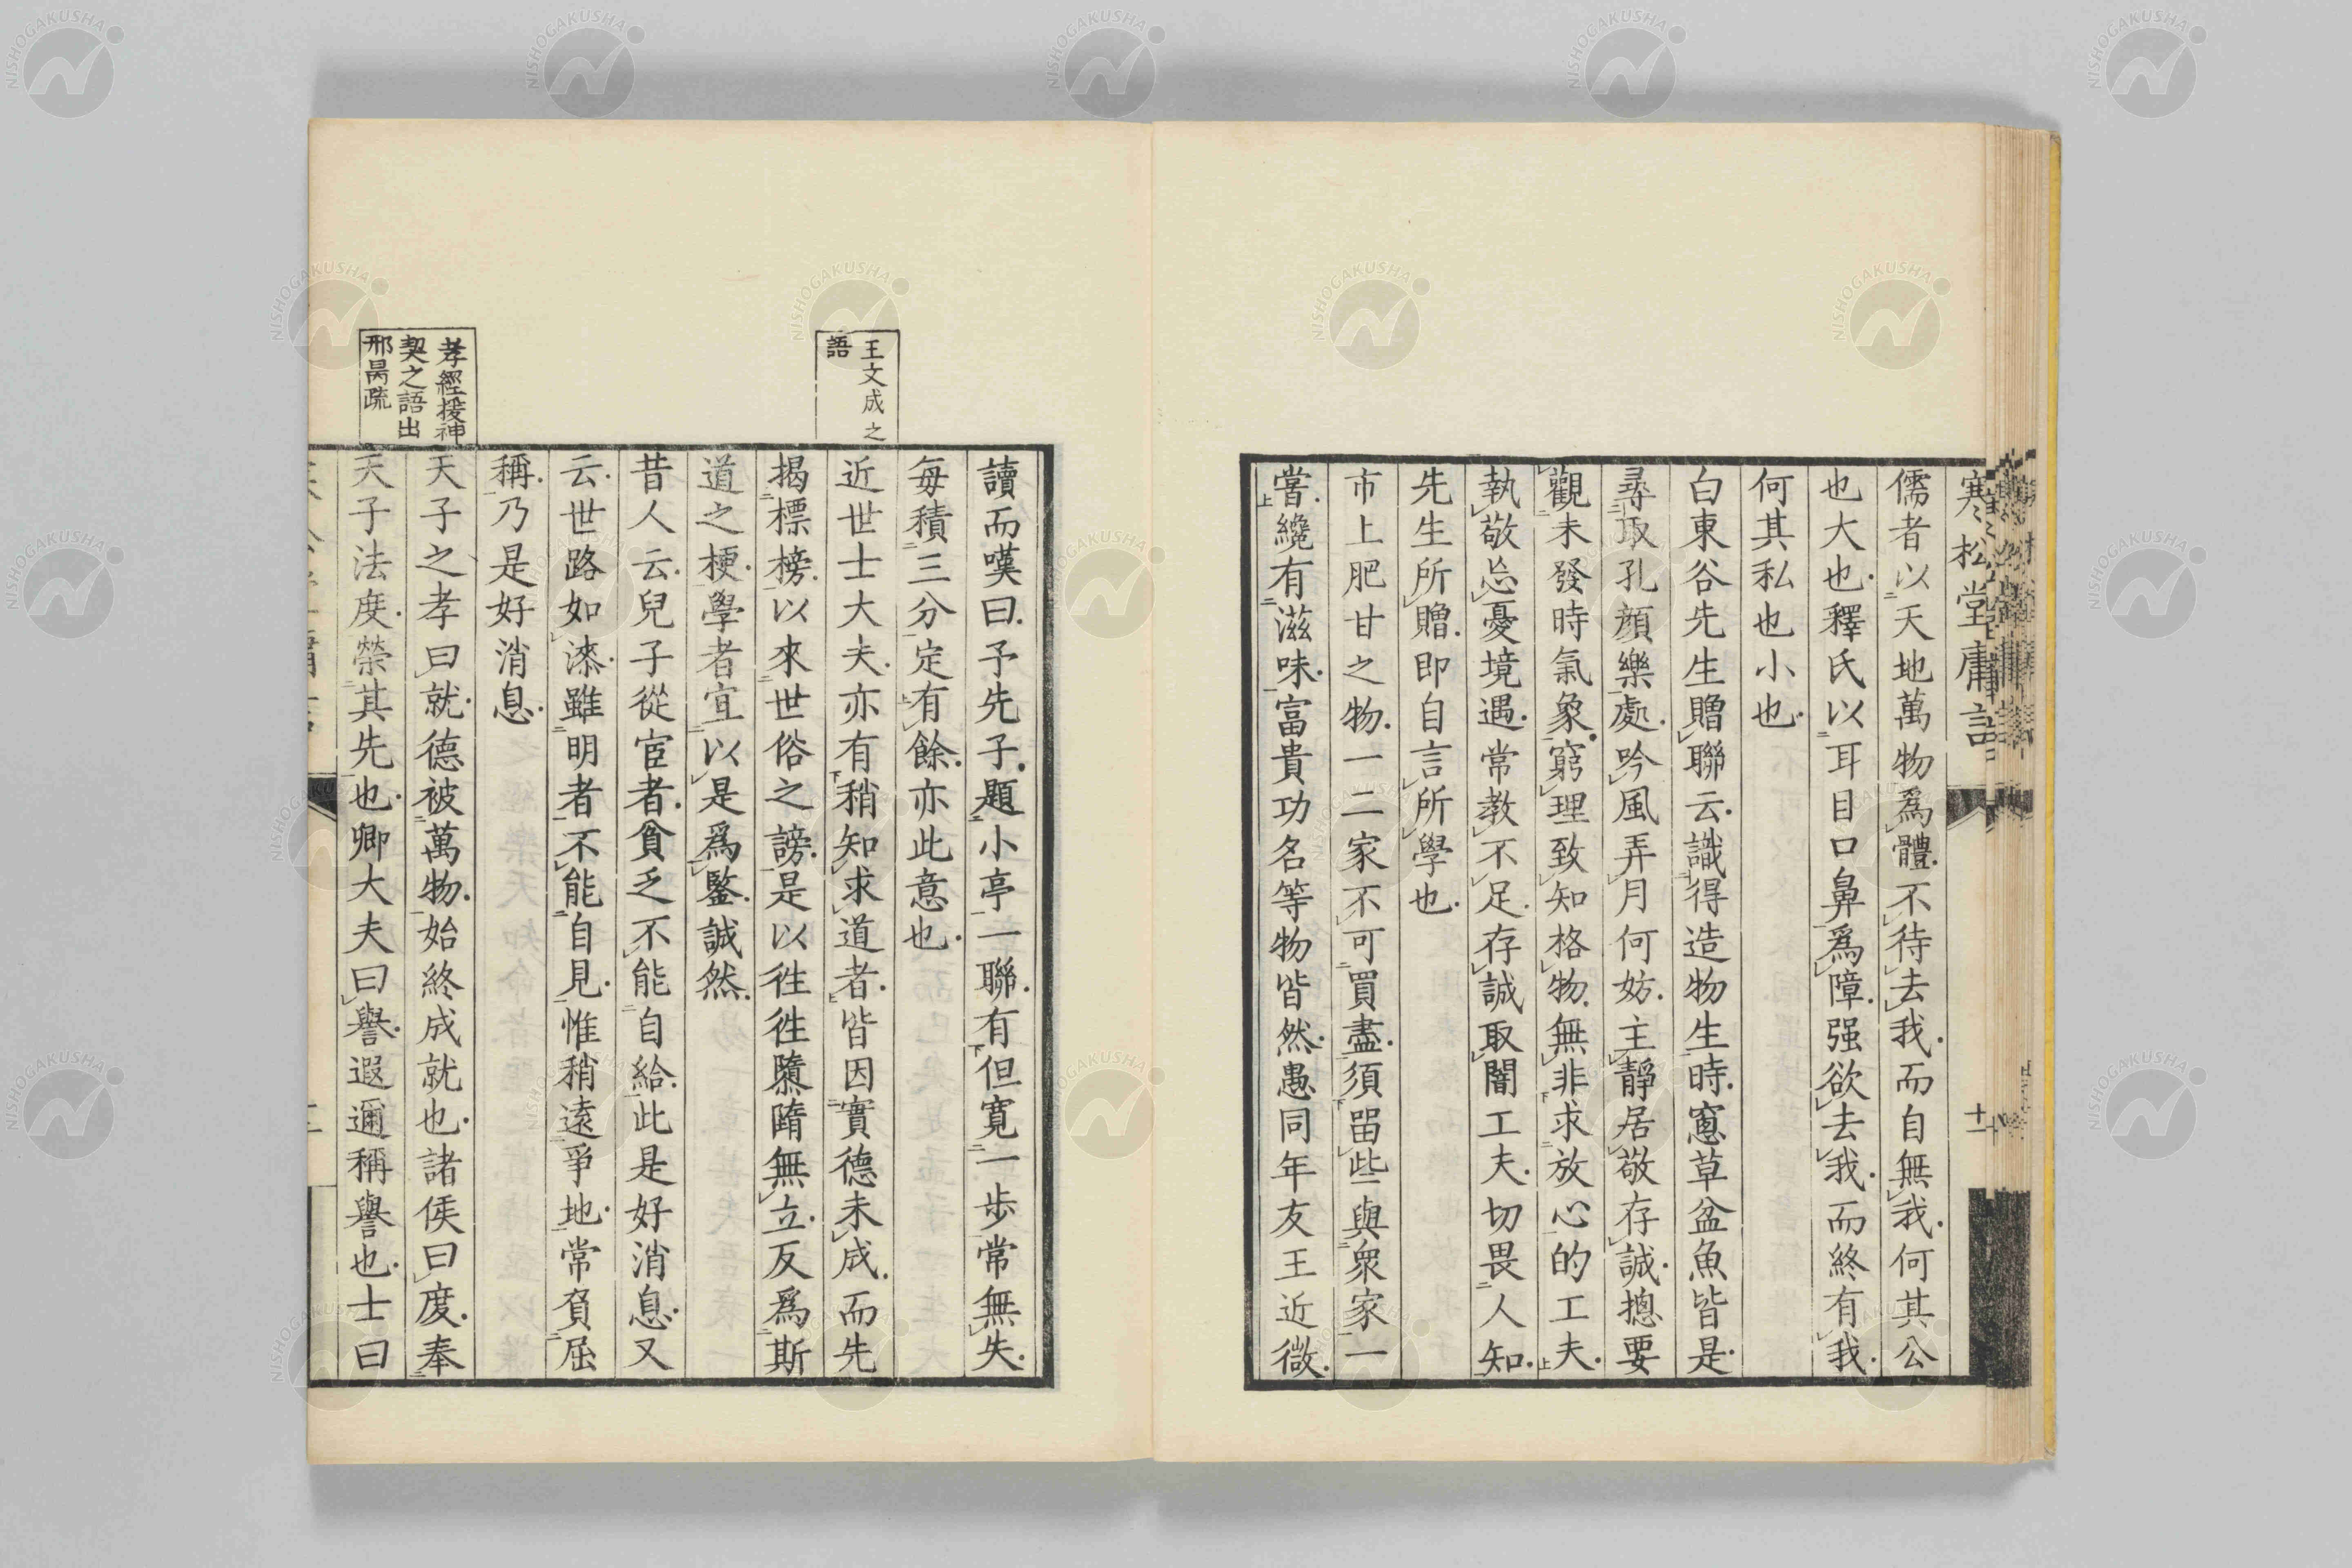 寒松堂庸語
十一
儒者以天地萬物爲體不待去我而自無我何其公
也大也釋氏以耳目口鼻爲障强欲去我而終有我
何其私也小也
白東谷先生贈聯云識得造物生時窻草盆魚皆是
尋取孔顔樂處吟風弄月何妨主靜居敬存誠摠要
觀未發時氣象窮理致知格物無非求放心的工夫
執敬忘憂境遇常教不足存誠取闇工夫切畏人知
先生所贈即自言所學也
市上肥甘之物一二家不可買盡須畱些與衆家一
嘗纔有滋味富貴功名等物皆然愚同年友王近微
讀而嘆曰予先子題小亭一聯有但寛一歩常無失
每積三分定有餘亦此意也
王文成之
語
近世士大夫亦有稍知求道者皆因實德未成而先
揭標榜以來世俗之謗是以徃徃隳隋無立反爲斯
道之梗學者宜以是爲鑒誠然
昔人云兒子從宦者貧乏不能自給此是好消息又
云世路如漆雖明者不能自見惟稍遠爭地常負屈
稱乃是好消息
孝經援神
契之語出
邢昺疏
天子之孝曰就德被萬物始終成就也諸侯曰度奉
天子法度榮其先也卿大夫曰譽遐邇稱譽也士曰
NISHOGAKUSHA